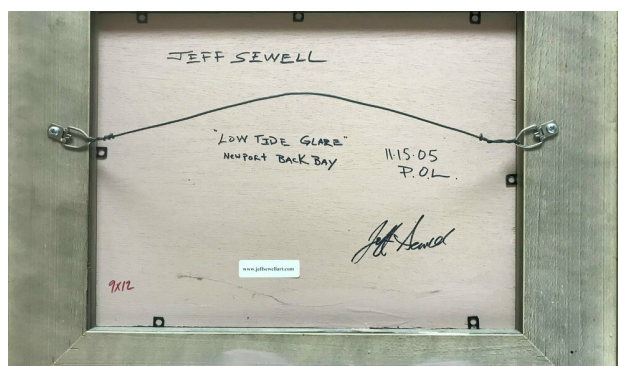 JEFF SEWELL
"LOW TIDE GLARE"
NEWPORT BACK BAY
11·15·05
P.O.L.
Jeff Sewell
www.jeffsewellart.com
9X12